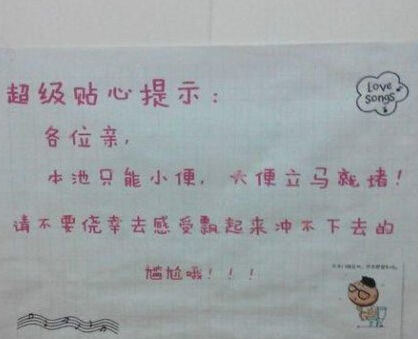 超级贴心提示：
Love
Songs
各位亲，
本池只能小便，大便立马就堵！
请不要侥幸去感受飘起来冲不下去的
尴尬哦！！！